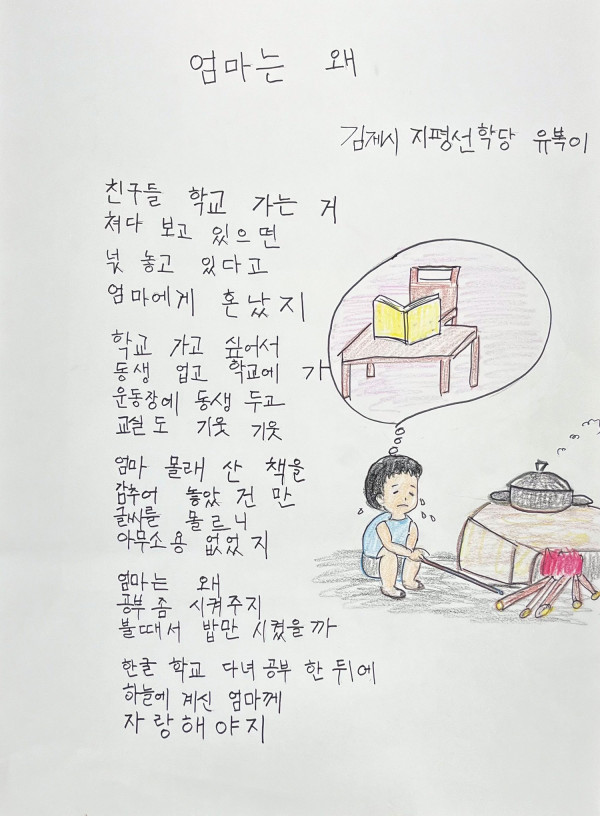 엄마는 왜
김제시 지평선학당 유복이
친구들 학교 가는 거
쳐다 보고 있으면
넋 놓고 있다고
엄마에게 혼났지
학교 가고 싶어서
동생 업고 학교에 가
운동장에 동생 두고
교실도 기웃 기웃
엄마 몰래 산 책을
감추어 놓았건만
글씨를 모르니
아무소용 없었지
엄마는 왜
공부 좀 시켜주지
불때서 밥만 시켰을까
한글 학교 다녀 공부 한 뒤에
하늘에 계신 엄마께
자랑해야지